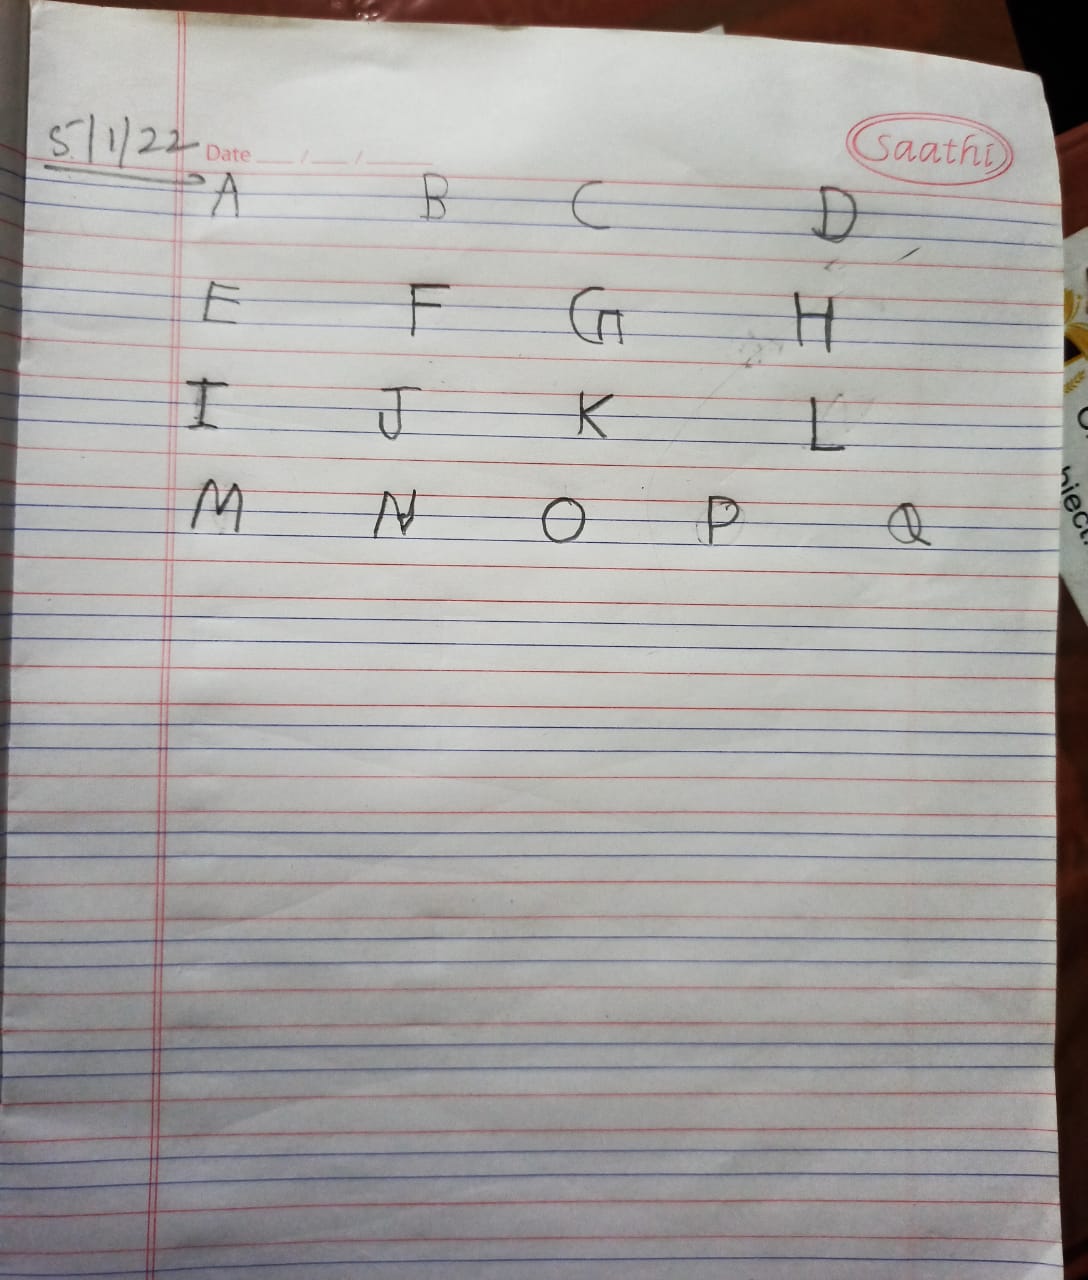 5/1/22 Date __/__/____ Saathi
A B C D
E F G H
I J K L
M N O P Q